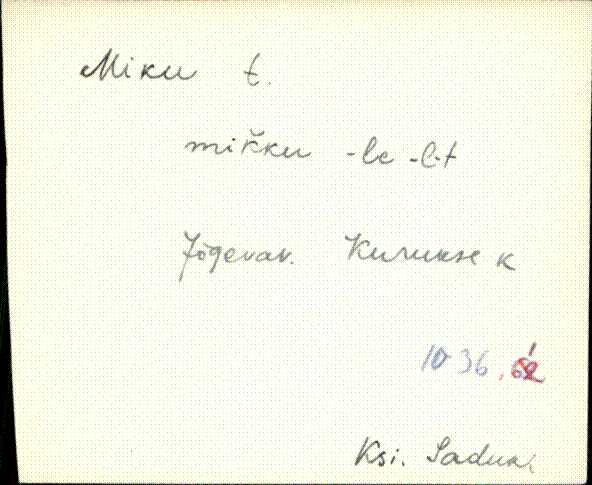 Miku t.
mikku -le -l-t
Jõgevav. Kurukse k
10 36
Ksi. Saduk.